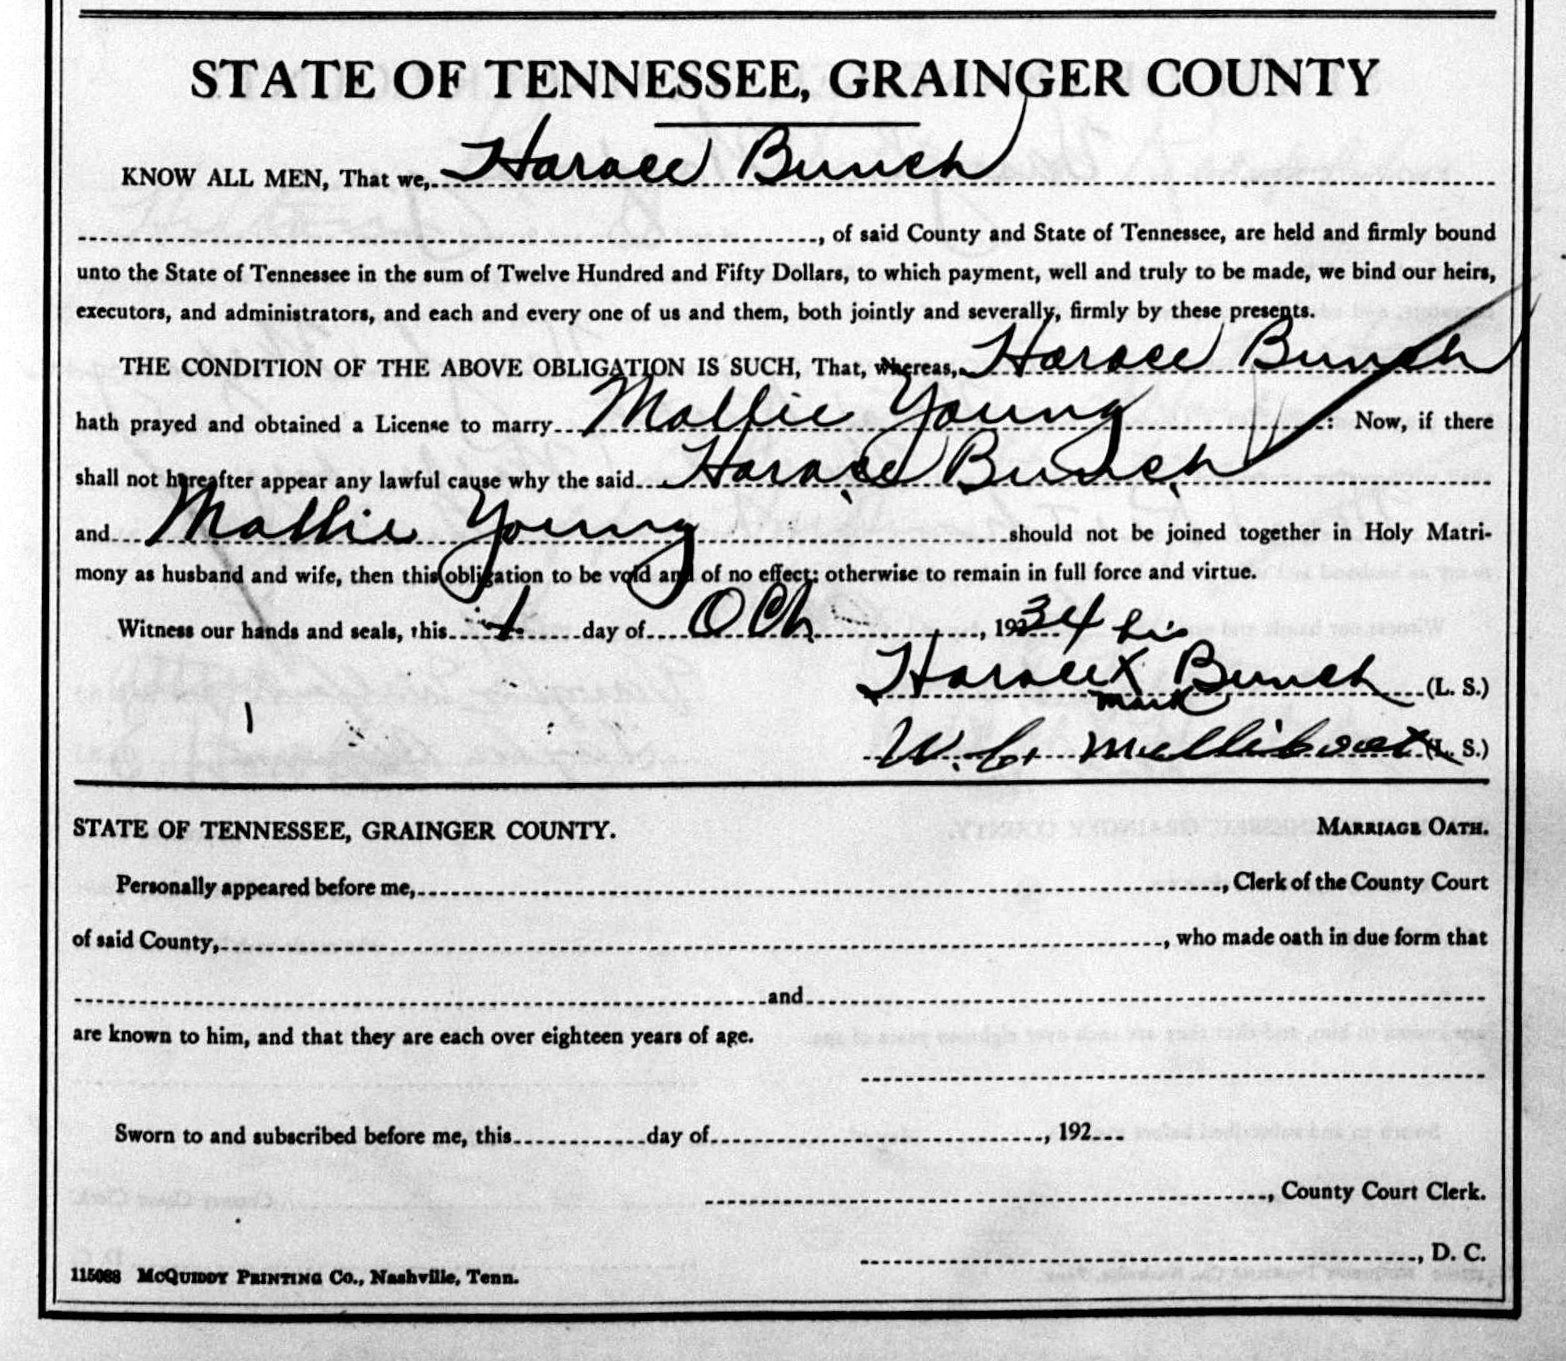 STATE OF TENNESSEE, GRAINGER COUNTY
KNOW ALL MEN, That we, Horace Bunch
, of said County and State of Tennessee, are held and firmly bound
unto the State of Tennessee in the sum of Twelve Hundred and Fifty Dollars, to which payment, well and truly to be made, we bind our heirs,
executors, and administrators, and each and every one of us and them, both jointly and severally, firmly by these presents.
THE CONDITION OF THE ABOVE OBLIGATION IS SUCH, That, whereas, Horace Bunch
hath prayed and obtained a License to marry Mollie Young : Now, if there
shall not hereafter appear any lawful cause why the said Horace Bunch
and Mollie Young should not be joined together in Holy Matri-
mony as husband and wife, then this obligation to be void and of no effect; otherwise to remain in full force and virtue.
Witness our hands and seals, this 1 day of Oct, 1934 his
Horace X Bunch (L. S.)
mark
W. C. (L. S.)
STATE OF TENNESSEE, GRAINGER COUNTY. MARRIAGE OATH.
Personally appeared before me, , Clerk of the County Court
of said County, , who made oath in due form that
and
are known to him, and that they are each over eighteen years of age.
Sworn to and subscribed before me, this day of , 192
, County Court Clerk.
, D. C.
115088 McQUIDDY PRINTING Co., Nashville, Tenn.